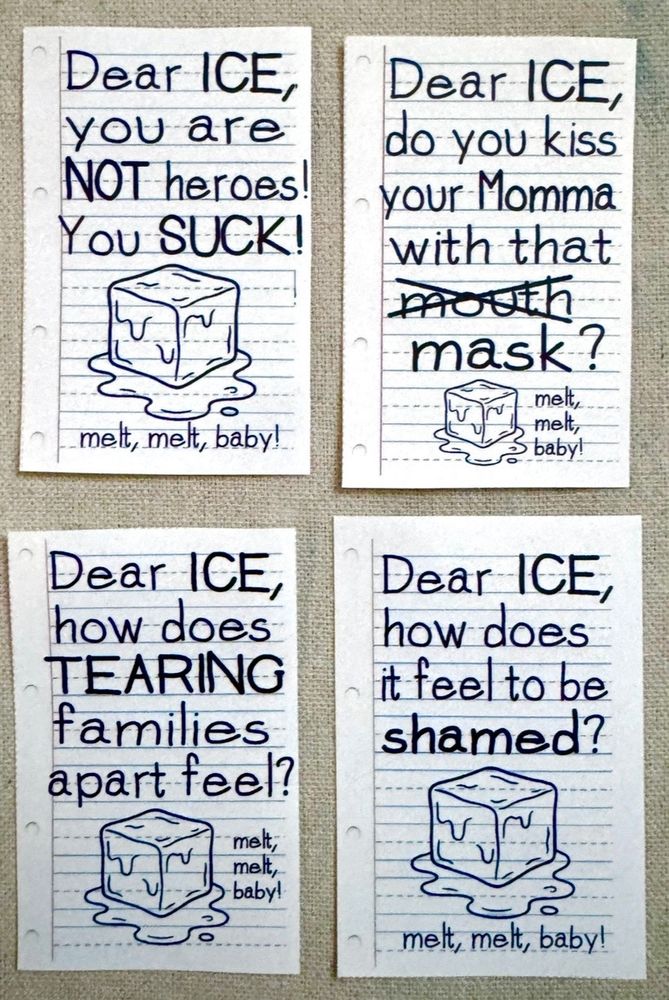 Dear ICE,
you are
NOT heroes!
You SUCK!
melt, melt, baby!
Dear ICE,
do you kiss
your Momma
with that
mouth
mask?
melt,
melt,
baby!
Dear ICE,
how does
TEARING
families
apart feel?
melt,
melt,
baby!
Dear ICE,
how does
it feel to be
shamed?
melt, melt, baby!